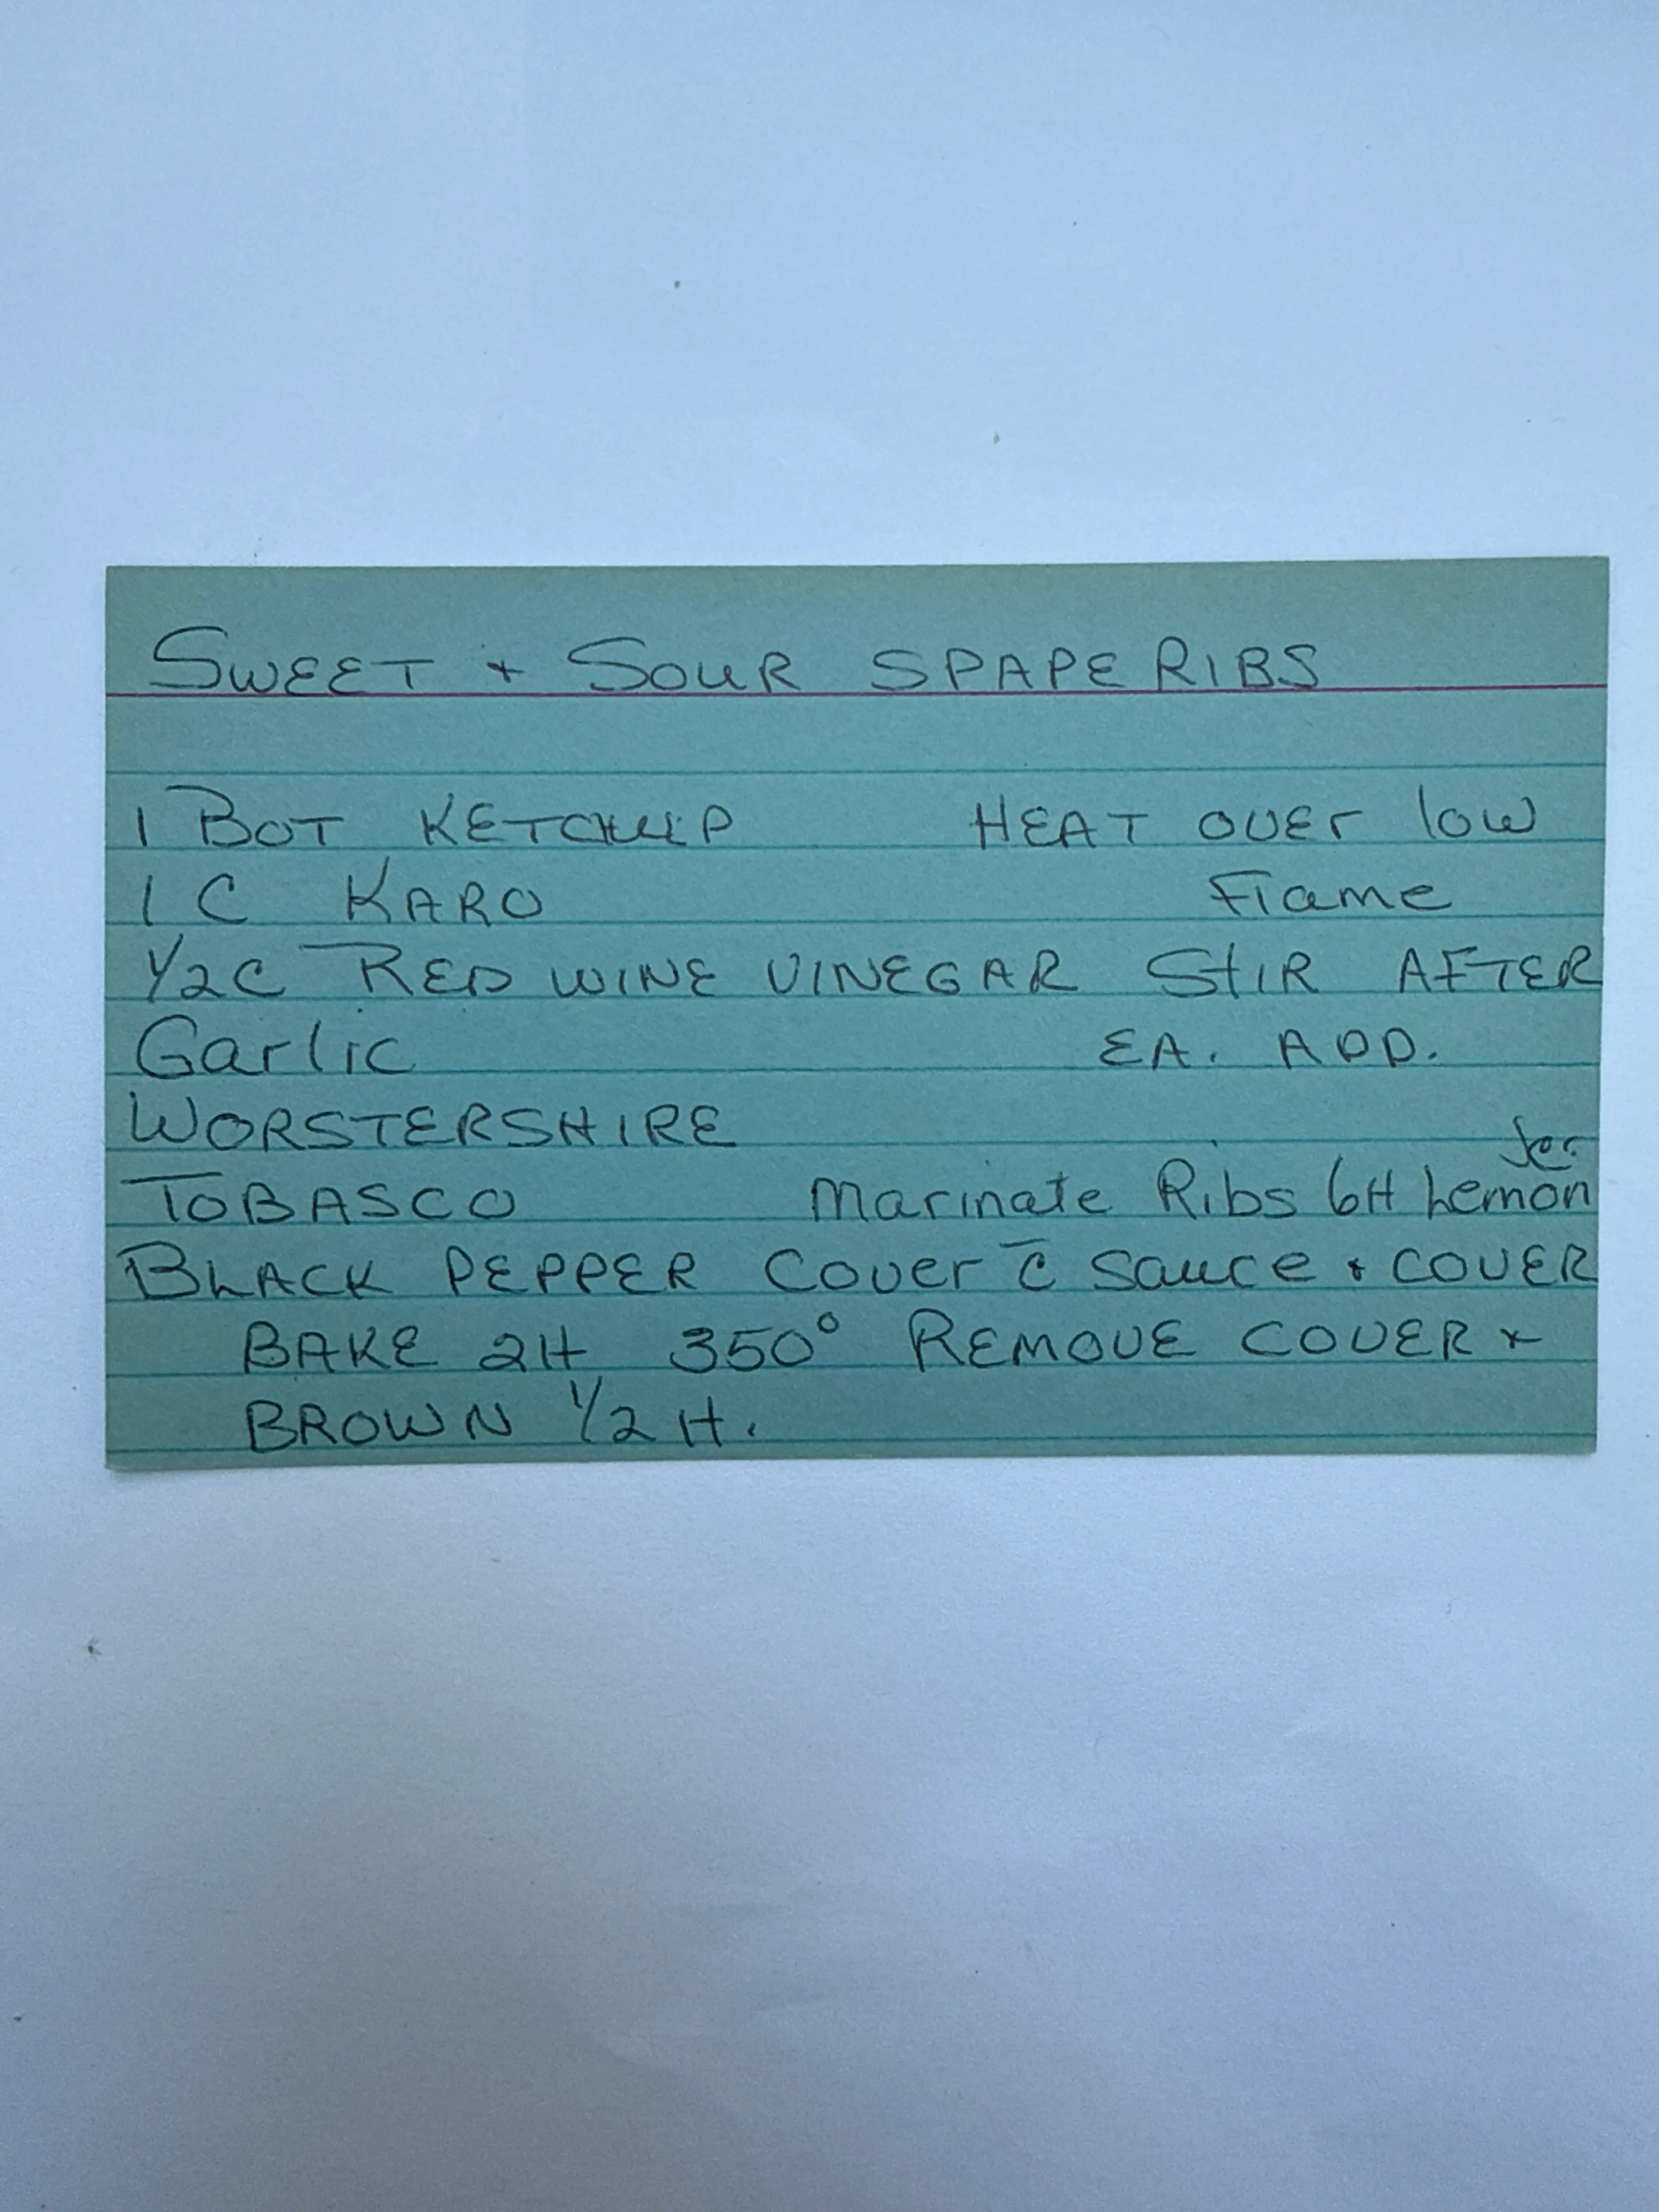 SWEET + SOUR SPAPERIBS
1 BOT KETCHUP HEAT OVER low
1 C KARO Flame
1/2 C RED WINE VINEGAR StIR AFTER
Garlic EA. ADD.
WORSTERSHIRE
TOBASCO Marinate Ribs 6H Lemon
BLACK PEPPER Cover c̄ Sauce + COVER
BAKE 2H 350° REMOVE COVER +
BROWN 1/2 H.